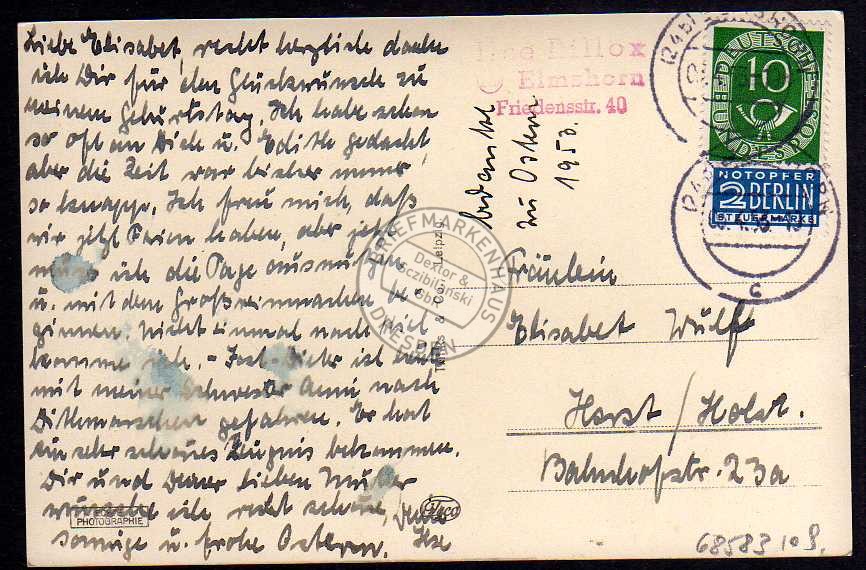 Liebe Elisabet, recht herzlich danke
ich Dir für den Glückwunsch zu
meinem Geburtstag. Ich habe schon
so oft an Dich u. Edith gedacht
aber die Zeit war bisher immer
so knapp. Ich freu mich, daß
wir jetzt Ferien haben, aber jetzt
muss ich die Tage ausnutzen
u. mit dem Großreinmachen be-
ginnen. Nicht einmal nach Kiel
komme ich. - Jost-Dieter ist
mit meiner Schwester Anni nach
Dithmarschen gefahren. Er hat
ein sehr schönes Zeugnis bekommen.
Dir und Deiner lieben Mutter
wünsche ich recht schöne,
sonnige u. frohe Ostern.
Deine
Ilse
PHOTOGRAPHIE
Ilse Dillox
Elmshorn
Friedensstr. 40
bedankt
zu Ostern
1953.
& Co. Leipzig
DEUTSCHE
BUNDESPOST
10
NOTOPFER
2 BERLIN
STEUERMARKE
(24b)
c
BRIEFMARKENHAUS
Dextor &
Sczibilanski
GbR
DRESDEN
Fräulein
Elisabet Wulff
Horst / Holst.
Bahnhofstr. 23a
68583 10 S.